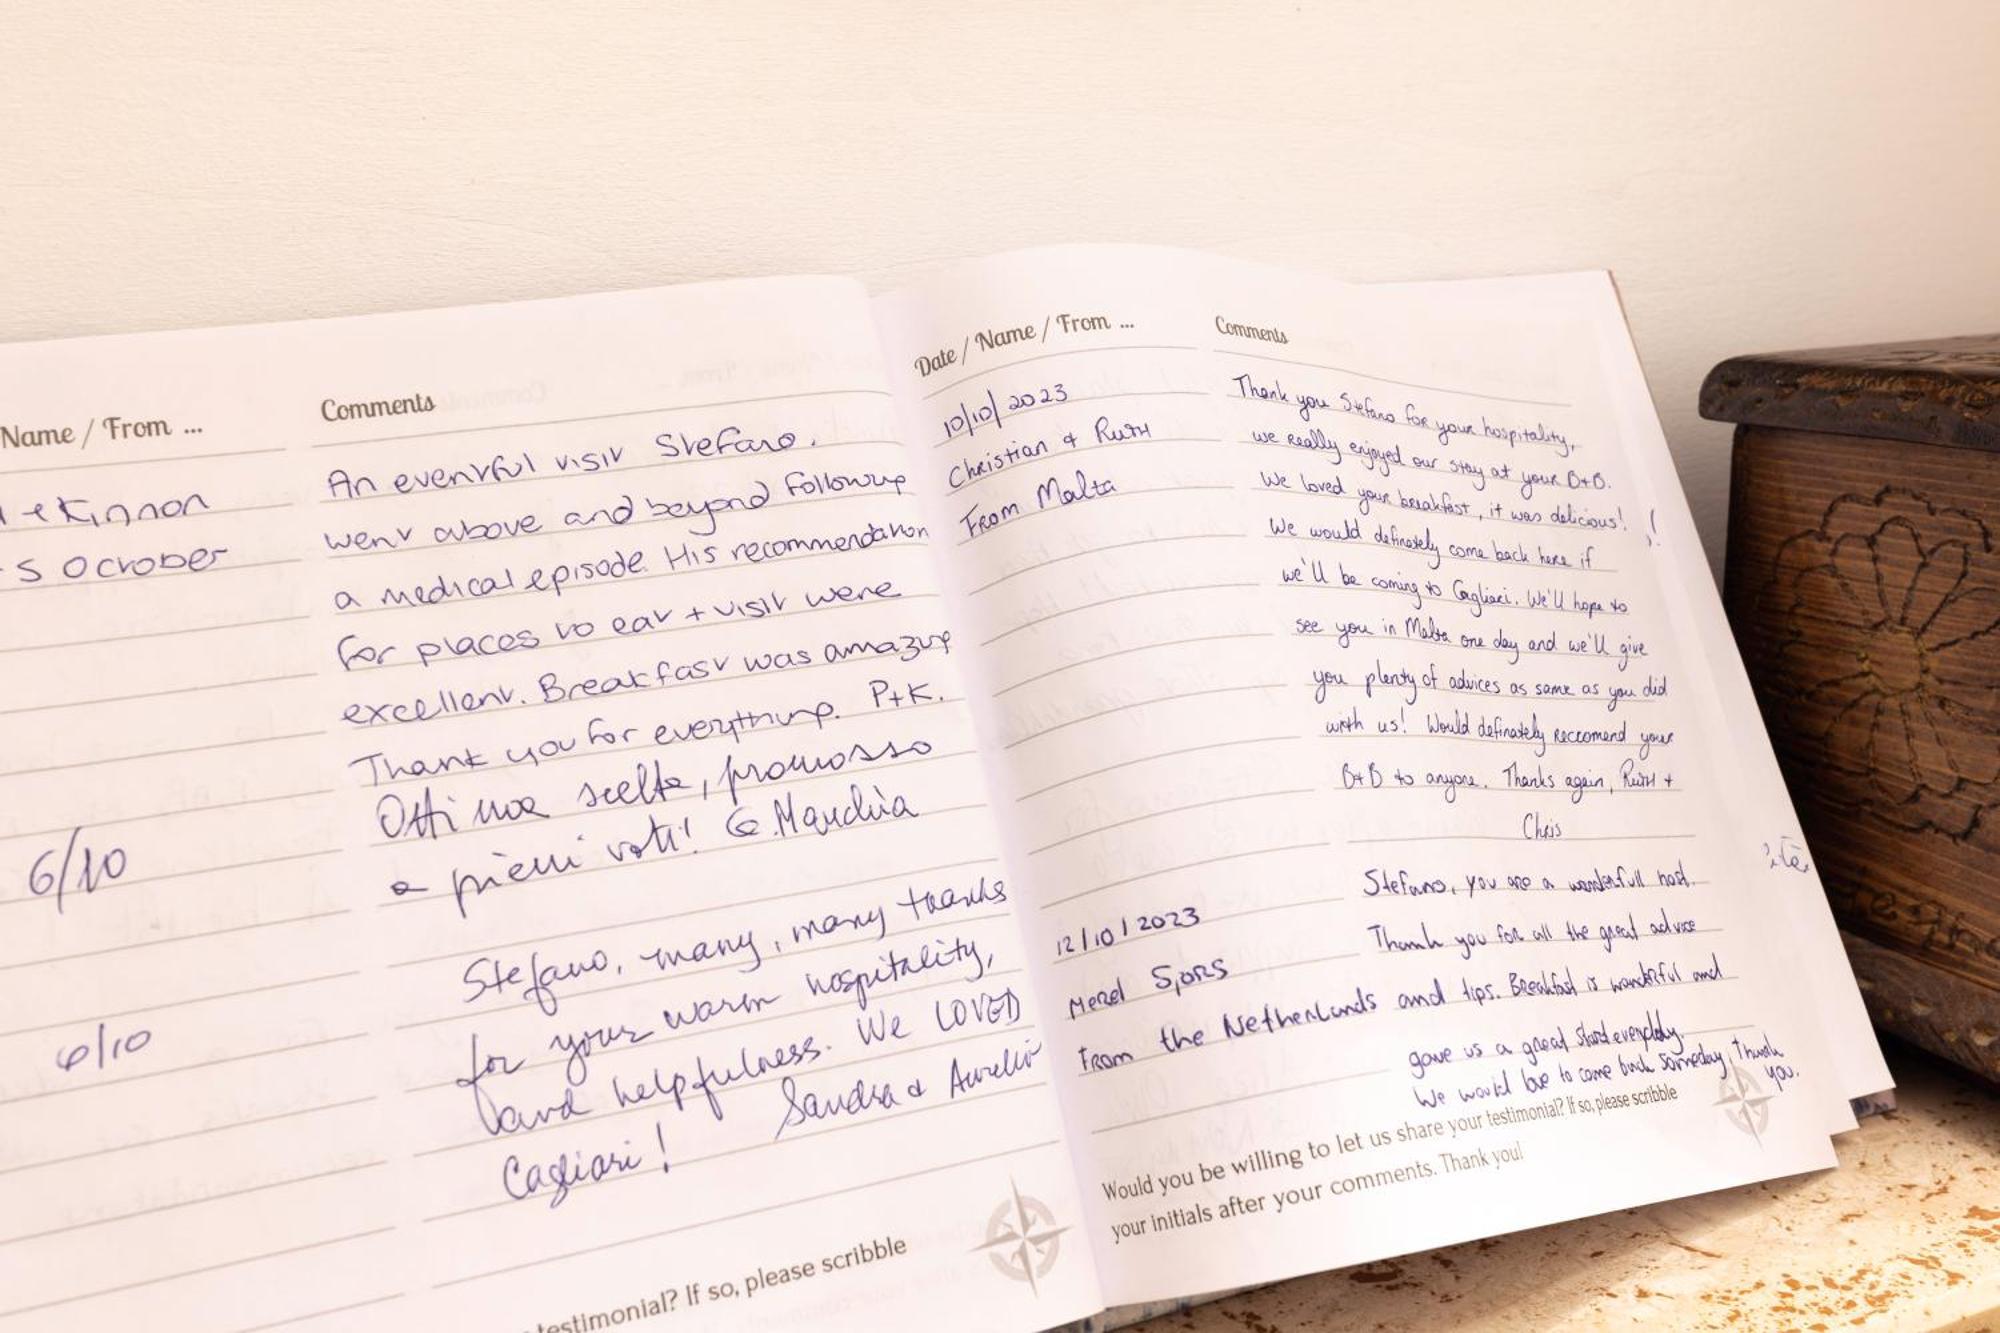 Name / From ...
Comments
Kinnon
5 October
An eventful visit Stefano.
went above and beyond following
a medical episode. His recommendation
for places to eat + visit were
excellent. Breakfast was amazing
Thank you for everything. P+K.
6/10
Ottima scelta, promosso
a pieni voti! G. Marchia
6/10
Stefano, many, many thanks
for your warm hospitality,
and helpfulness. We LOVED
Cagliari! Sandra & Aurelio
testimonial? If so, please scribble
Date / Name / From ...
Comments
10/10/2023
Christian & Ruth
From Malta
Thank you Stefano for your hospitality,
we really enjoyed our stay at your B+B.
We loved your breakfast, it was delicious!!
We would definately come back here if
we'll be coming to Cagliari. We'll hope to
see you in Malta one day and we'll give
you plenty of advices as same as you did
with us! Would definately reccomend your
B+B to anyone. Thanks again, Ruth +
Chris
12/10/2023
Merel
From the Netherlands
Stefano, you are a wonderfull host.
Thank you for all the great advice
and tips. Breakfast is wonderful and
gave us a great start everyday.
We would love to come back someday, Thank
you.
Would you be willing to let us share your testimonial? If so, please scribble
your initials after your comments. Thank you!